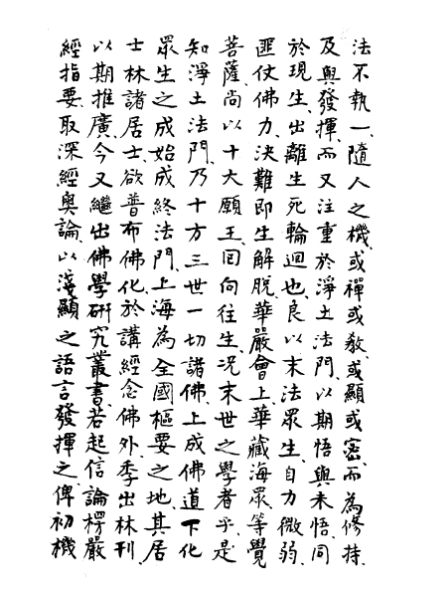 法不執一、隨人之機、或禪或教、或顯或密、而為修持、
及與發揮、而又注重於淨土法門、以期悟與未悟、同
於現生、出離生死輪迴也、良以末法眾生、自力微弱、
匪仗佛力、決難即生解脫、華嚴會上、華藏海眾、等覺
菩薩、尚以十大願王、回向往生、況末世之學者乎、是
知淨土法門、乃十方三世一切諸佛、上成佛道、下化
眾生之成始成終法門、上海為全國樞要之地、其居
士林諸居士、欲普布佛化、於講經念佛外、季出林刊、
以期推廣、今又繼出佛學研究叢書、若起信論楞嚴
經指要、取深經奧論、以淺顯之語言發揮之、俾初機